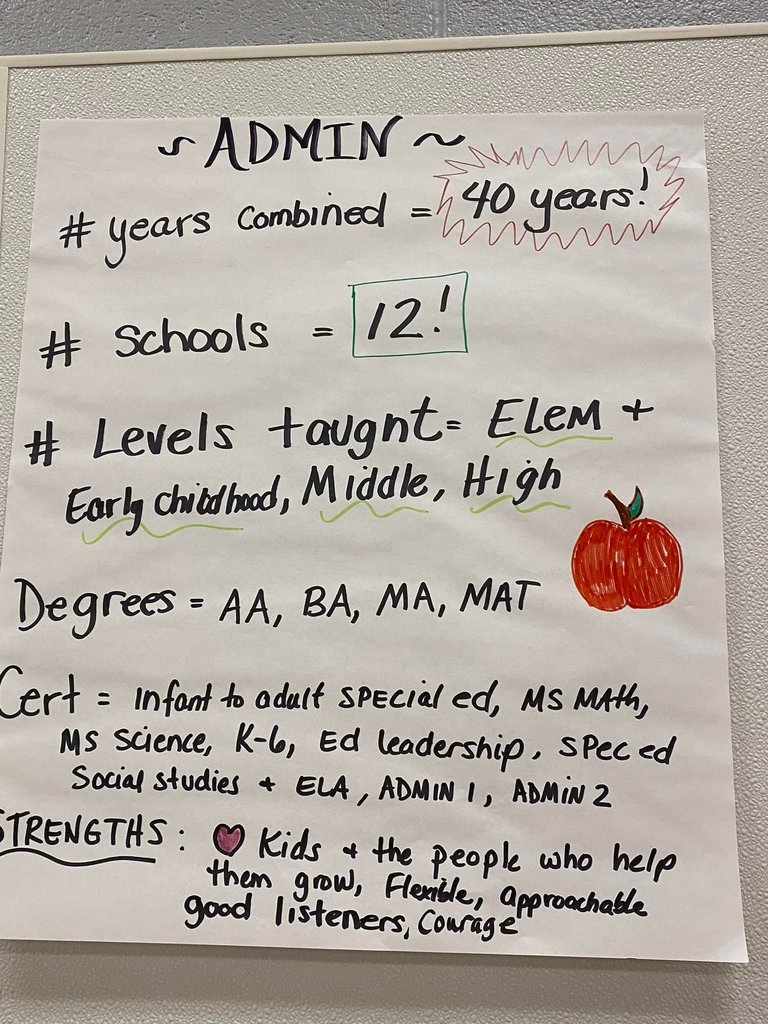 ~ ADMIN ~
# years combined = 40 years!
# Schools = 12!
# Levels taught = Elem +
Early childhood, Middle, High
Degrees = AA, BA, MA, MAT
Cert = infant to adult special ed, MS Math,
MS Science, K-6, Ed leadership, Spec ed
Social studies + ELA, ADMIN 1, ADMIN 2
STRENGTHS: ♥ Kids + the people who help
them grow, Flexible, approachable
good listeners, Courage